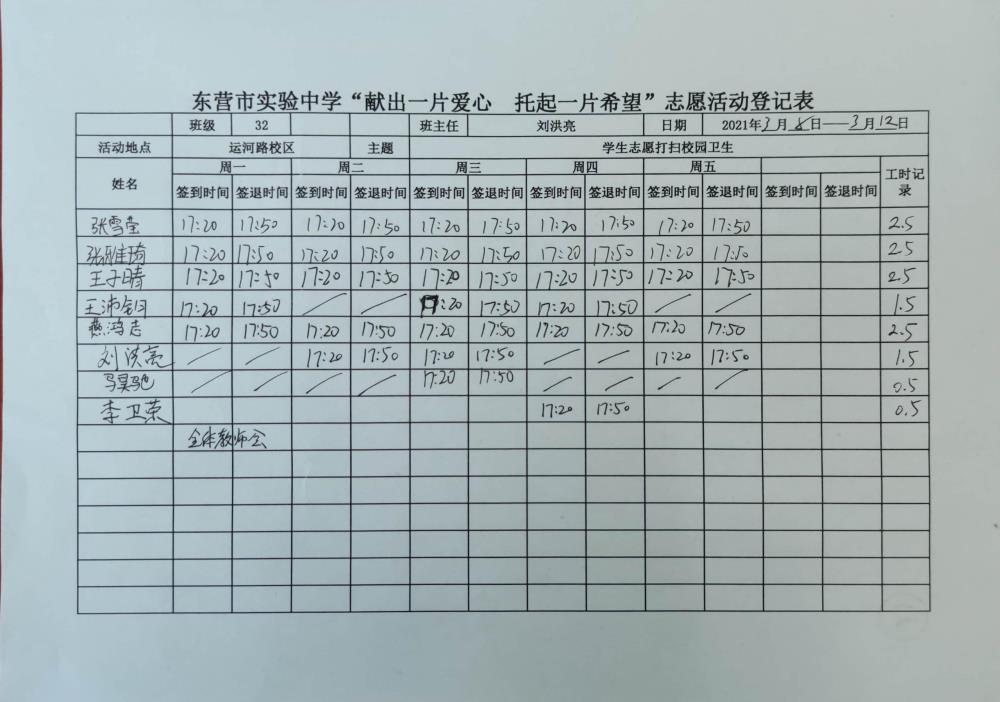 东营市实验中学“献出一片爱心 托起一片希望”志愿活动登记表
班级 32 班主任 刘洪亮 日期 2021年3月8日——3月12日
活动地点 运河路校区 主题 学生志愿打扫校园卫生
姓名 周一 周二 周三 周四 周五 工时记录
签到时间 签退时间 签到时间 签退时间 签到时间 签退时间 签到时间 签退时间 签到时间 签退时间 签到时间 签退时间
张雪莹 17:20 17:50 17:20 17:50 17:20 17:50 17:20 17:50 17:20 17:50 2.5
张雅琦 17:20 17:50 17:20 17:50 17:20 17:50 17:20 17:50 17:20 17:50 2.5
王子晴 17:20 17:50 17:20 17:50 17:20 17:50 17:20 17:50 17:20 17:50 2.5
王沛 17:20 17:50 / / :20 17:50 17:20 17:50 / / 1.5
燕鸿志 17:20 17:50 17:20 17:50 17:20 17:50 17:20 17:50 17:20 17:50 2.5
刘洪亮 / / 17:20 17:50 17:20 17:50 / / 17:20 17:50 1.5
马昊驰 / / / / 17:20 17:50 / / / / 0.5
李卫荣 17:20 17:50 0.5
全体教师会